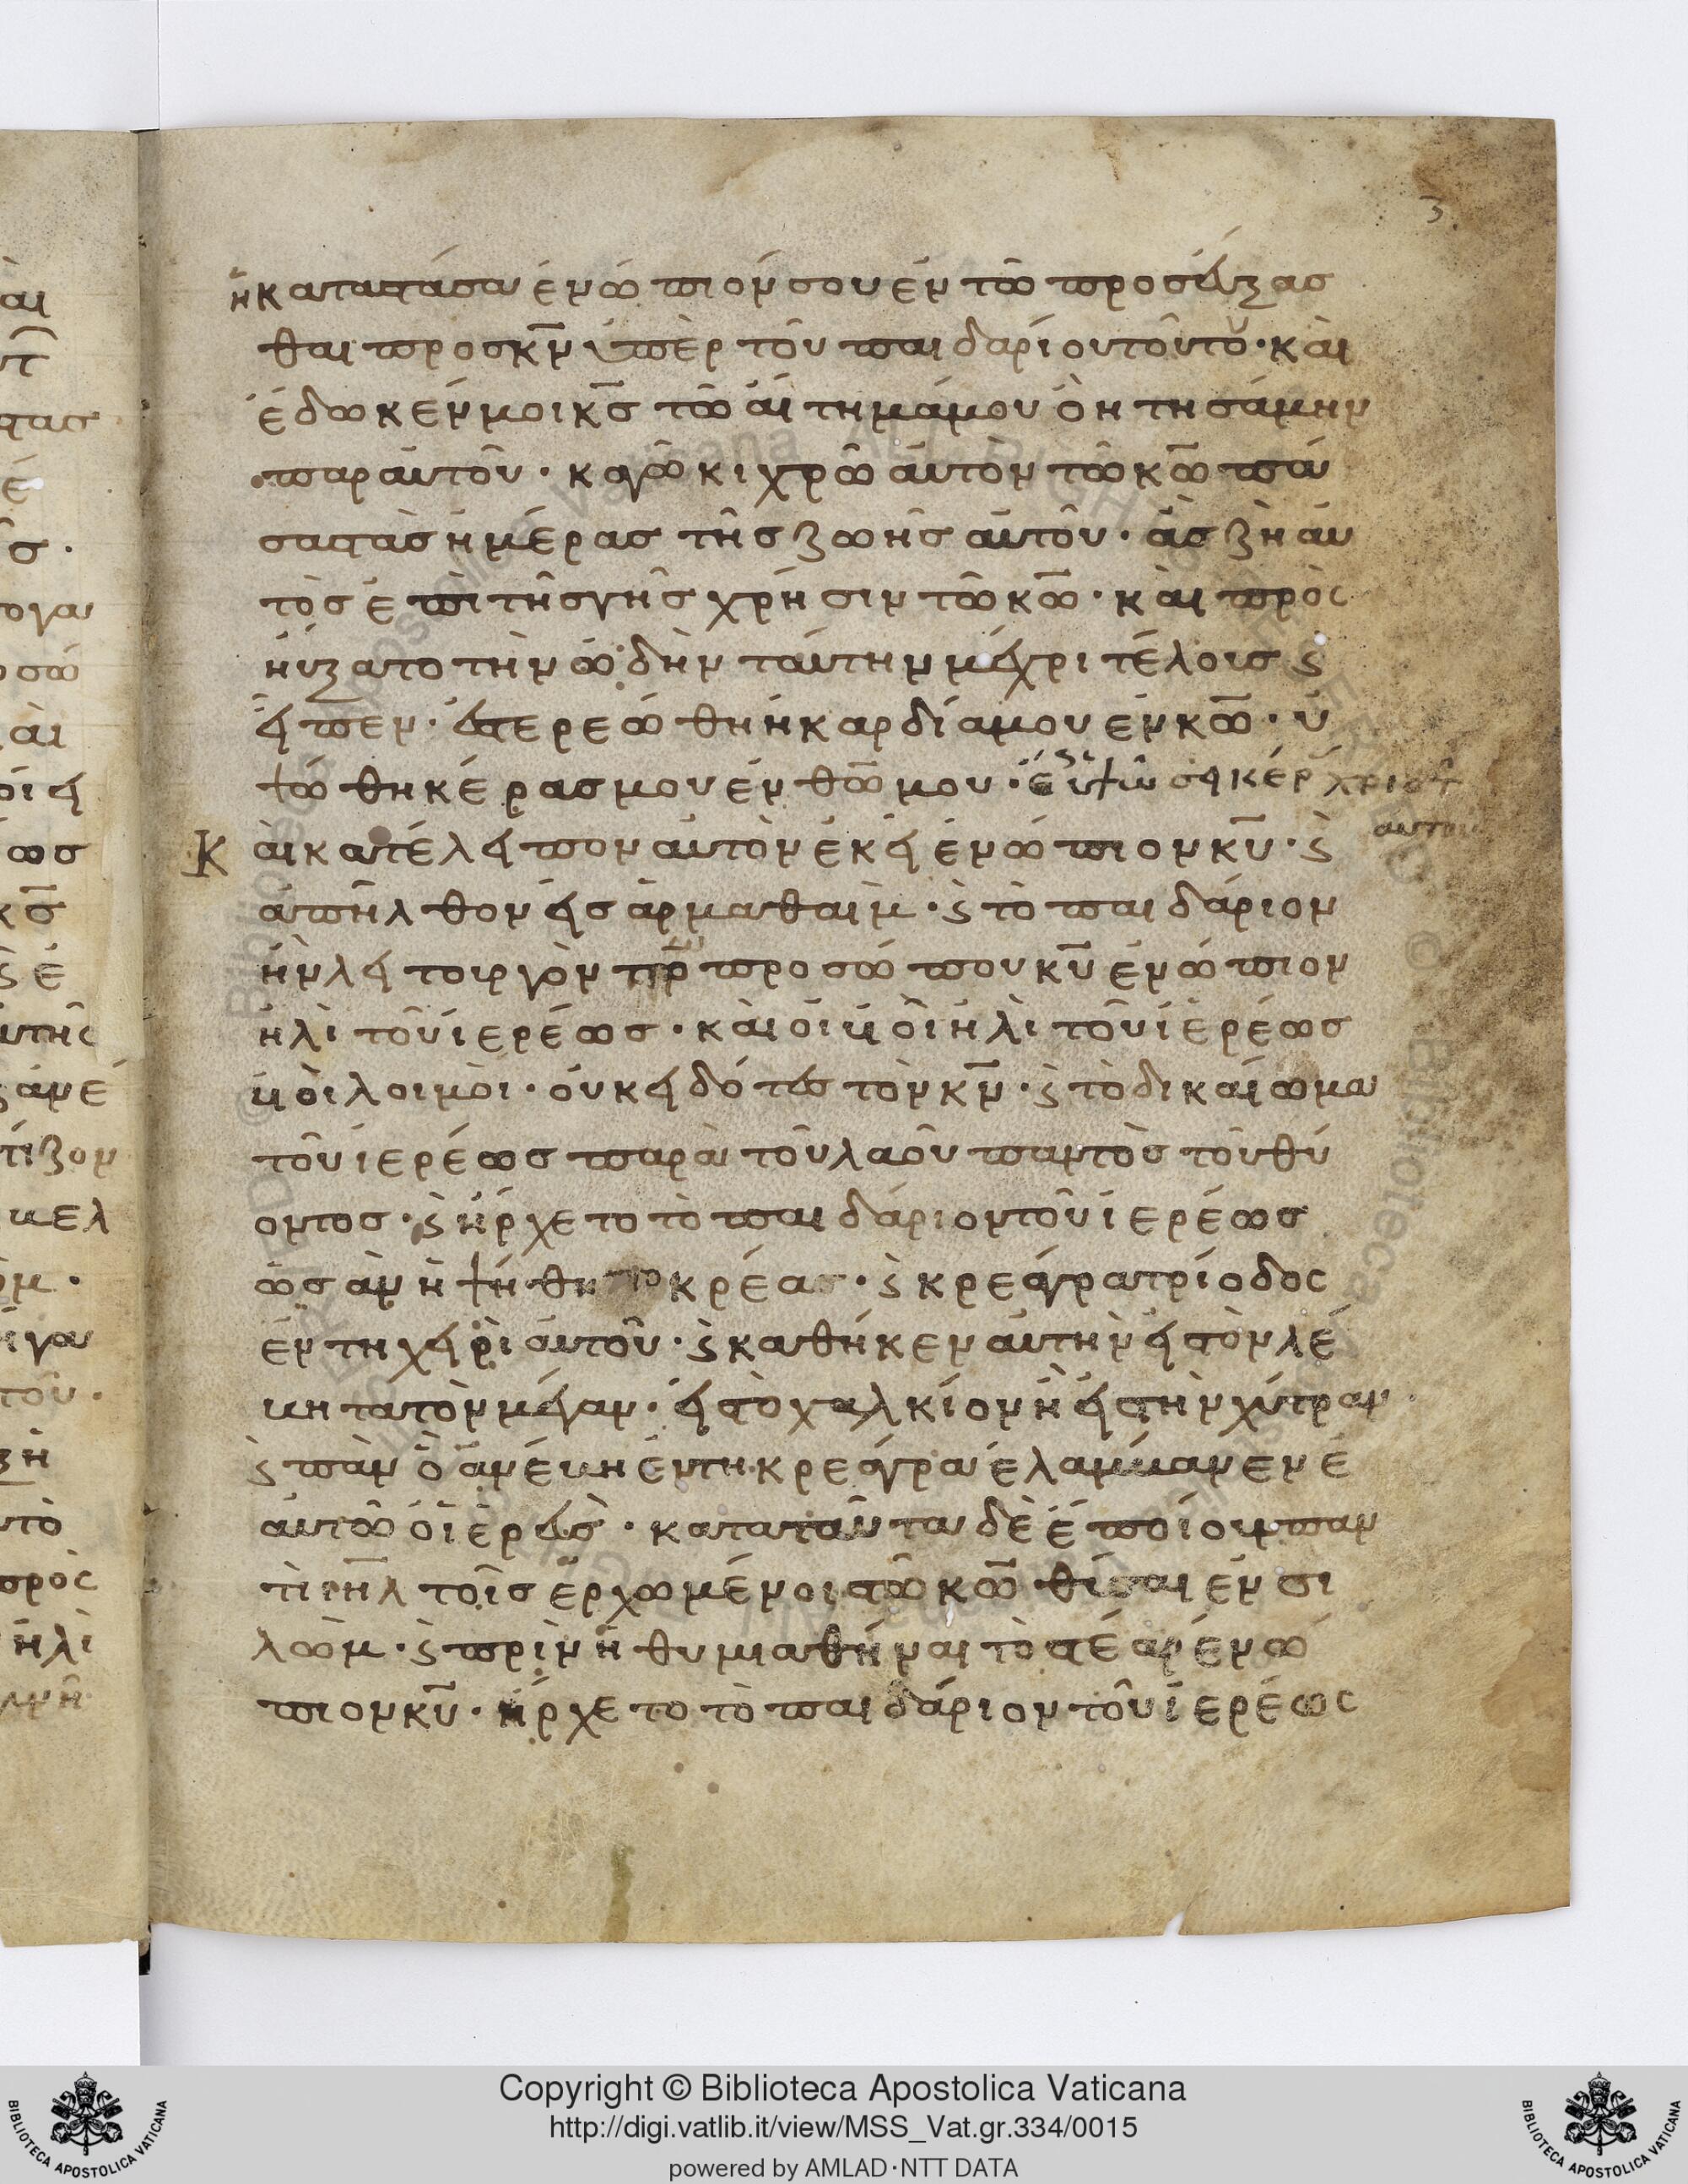 3
ἡ καταστάσα ἐνώπιόν σου ἐν τῶ προσεύξασ
θαι προς κ̅ν̅ ὑπὲρ τοῦ παιδαρίου τούτου · καὶ
ἔδωκέν μοι κ̅ς̅ τῶ αἴτημά μου ὃ ἠτησάμην
παρ αὐτοῦ · καγῶ κιχρῶ αὐτὸν τῶ κ̅ω̅ πά
σας τὰς ἡμέρας τῆς ζωῆς αὐτοῦ · ἃς ζῆ αὐ
τὸς ἐπὶ τῆς γῆς χρῆσιν τῶ κ̅ω̅ · καὶ προσ
ηύξατο τὴν ὠδὴν ταύτην μέχρι τέλους ϛ
εἶπεν · ἐστερεώθη ἡ καρδία μου ἐν κ̅ω̅ · ὑ
ψώθη κέρας μου ἐν θ̅ω̅ μου · ἕως ὑψώσει κέρ χριστ
αυτου
Καὶ κατέλειπον αὐτὸν ἐκεῖ ἐνώπιον κ̅υ̅ · ϛ
ἀπῆλθον εἰς ἁρμαθαὶμ · ϛ τὸ παιδάριον
ἦν λειτουργὸν πρ προσώπου κ̅υ̅ ἐνώπιον
ἠλὶ τοῦ ἱερέως · καὶ οἱ υἱοὶ ἠλὶ τοῦ ἱερέως
υἱοὶ λοιμοὶ · οὐκ εἰδότες τὸν κ̅ν̅ · ϛ τὸ δικαίωμα
τοῦ ἱερέως παρὰ τοῦ λαοῦ παντὸς τοῦ θύ
οντος · ϛ ἤρχετο τὸ παιδάριον τοῦ ἱερέως
ὡς ἂν ἡψήθη το κρέας · ϛ κρεάγρα τρίοδος
ἐν τη χειρὶ αὐτοῦ · ϛ καθῆκεν αὐτὴν εἰς τὸν λέ
βητα τὸν μέγαν · εἰς τὸ χαλκίον ἢ εἰς τὴν χύτραν ·
ϛ πὰν ὃ ἀνέβη ἐν τη κρεάγρα ἐλάμβανεν ἑ
αυτῶ ὁ ἱερεὺς · κατὰ ταῦτα δὲ ἐποίουν παν
τὶ ι̅η̅λ̅ τοῖς ἐρχωμένοις τῶ κ̅ω̅ θῦσαι ἐν σι
λωὰμ · ϛ πρὶν ἢ θυμιαθήναι τὸ στέαρ ἐνώ
πιον κ̅υ̅ · ἤρχετο τὸ παιδάριον τοῦ ἱερέως
Copyright © Biblioteca Apostolica Vaticana
http://digi.vatlib.it/view/MSS_Vat.gr.334/0015
powered by AMLAD·NTT DATA
BIBLIOTECA APOSTOLICA VATICANA
BIBLIOTECA APOSTOLICA VATICANA